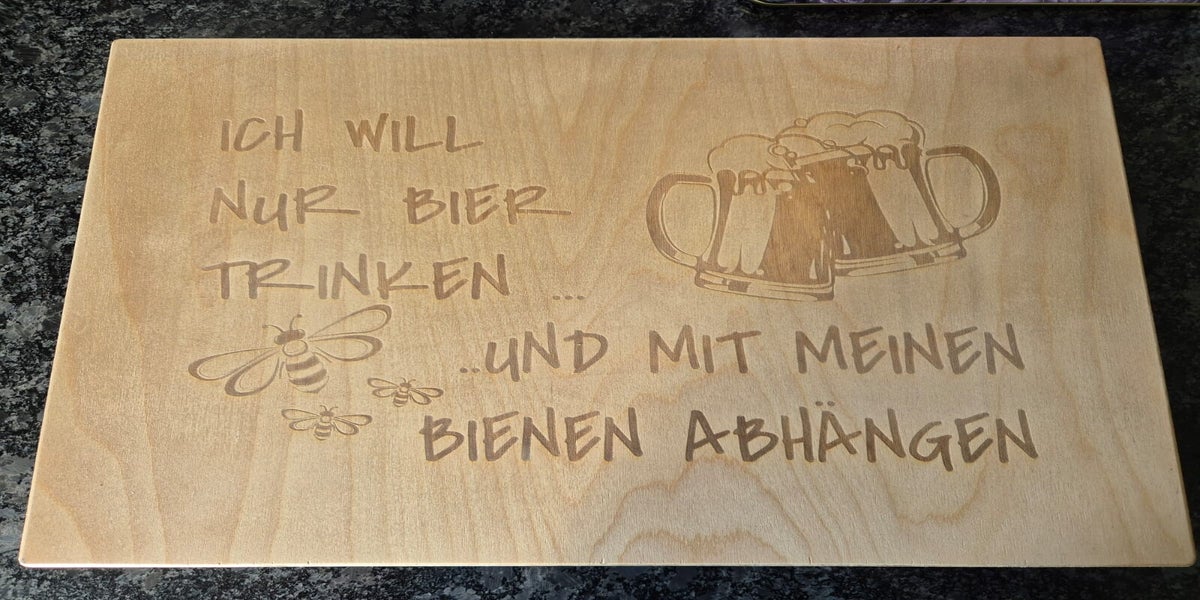 ICH WILL
NUR BIER
TRINKEN ...
..UND MIT MEINEN
BIENEN ABHÄNGEN